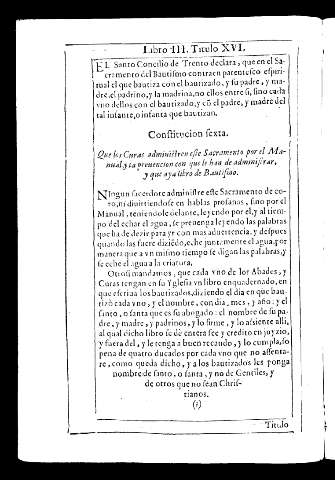 Libro III. Titulo XVI.
EL Santo Concilio de Trento declara, que en el Sa-
cramento del Bautismo contraen parentesco espiri-
tual el que bautiza con el bautizado, y su padre, y ma-
dre, el padrino, y la madrina, no ellos entre si, sino cada
vno dellos con el bautizado, y cõ el padre, y madre del
tal infante, o infanta que bautizan.
Constitucion sexta.
Que los Curas administren este Sacramento por el Ma-
nual, y la preuencion con que le han de administrar,
y que aya libro de Bautismo.
NIngun sacerdote administre este Sacramento de co-
ro, ni diuirtiendose en hablas profanas, sino por el
Manual, teniendole delante, leyendo por el, y al tiem-
po del echar el agua, se preuenga leyendo las palabras
que ha de dezir para yr con mas aduertencia, y despues
quando las fuere diziẽdo, eche juntamente el agua, por
manera que a vn mismo tiempo se digan las palabras, y
se eche el agua a la criatura.
Otrosi mandamos, que cada vno de los Abades, y
Curas tengan en su Yglesia vn libro enquadernado, en
que escriua los bautizados, diziendo el dia en que bau-
tizò cada vno, y el nombre, con dia, mes, y año: y el
santo, o santa que es su abogado: el nombre de su pa-
dre, y madre, y padrinos, y lo firme, y lo assiente alli,
al qual dicho libro se dè entera fee y credito en juyzio,
y fuera del, y le tenga a buen recaudo, y lo cumpla, so
pena de quatro ducados por cada vno que no assenta-
re, como queda dicho, y a los bautizados les ponga
nombre de santo, o santa, y no de Gentiles, y
de otros que no sean Chris-
tianos.
(?)
Titulo